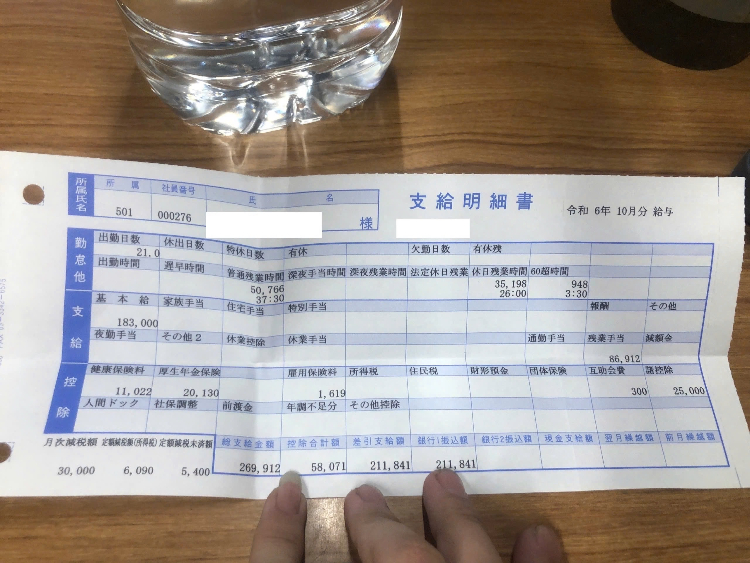 所属氏名 所属 社員番号 氏 名
501 000276 様
支給明細書 令和 6年 10月分 給与
勤怠他
出勤日数 休出日数 特休日数 有休 欠勤日数 有休残
21.0
出勤時間 遅早時間 普通残業時間 深夜手当時間 深夜残業時間 法定休日残業 休日残業時間 60超時間
50,766 35,198 948
37:30 26:00 3:30
支給
基本給 家族手当 住宅手当 特別手当 報酬 その他
183,000
夜勤手当 その他2 休業控除 休業手当 通勤手当 残業手当 減額金
86,912
控除
健康保険料 厚生年金保険 雇用保険料 所得税 住民税 財形預金 団体保険 互助会費 諸控除
11,022 20,130 1,619 300 25,000
人間ドック 社保調整 前渡金 年調不足分 その他控除
月次減税額 定額減税額(所得税) 定額減税未済額 総支給金額 控除合計額 差引支給額 銀行1振込額 銀行2振込額 現金支給額 翌月繰越額 前月繰越額
30,000 6,090 5,400 269,912 58,071 211,841 211,841